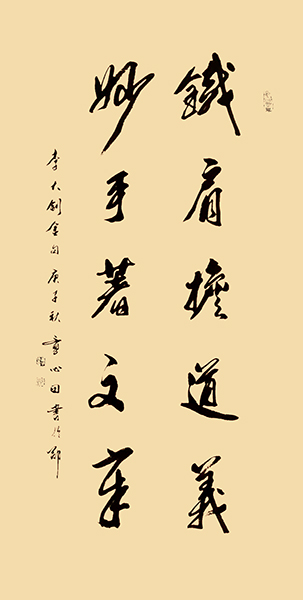 鐵肩擔道義
妙手著文章
李大釗金句庚子秋章心田書於鄭